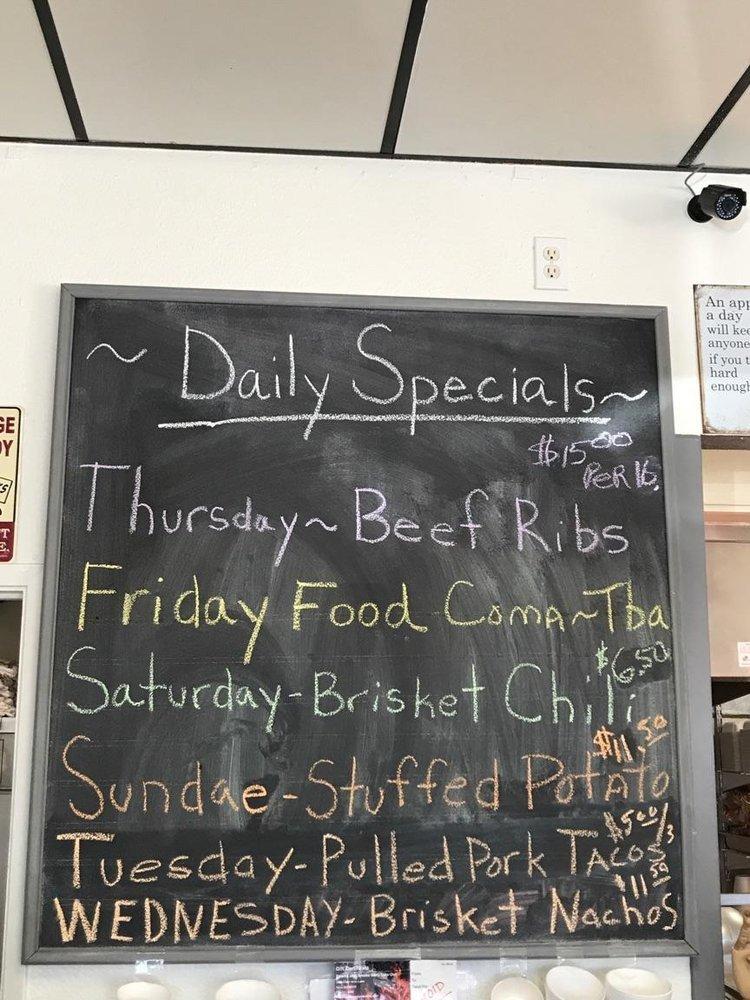 ~ Daily Specials ~
$15.00
PeR lb.
Thursday ~ Beef Ribs
Friday Food Coma ~ Tba
$6.50
Saturday - Brisket Chili
$11.50
Sundae - Stuffed Potato
$5.00/3
Tuesday - Pulled Pork Tacos
$11.50
WEDNESDAY - Brisket Nachos
An app
a day
will kee
anyone
if you t
hard
enough
GE
DY